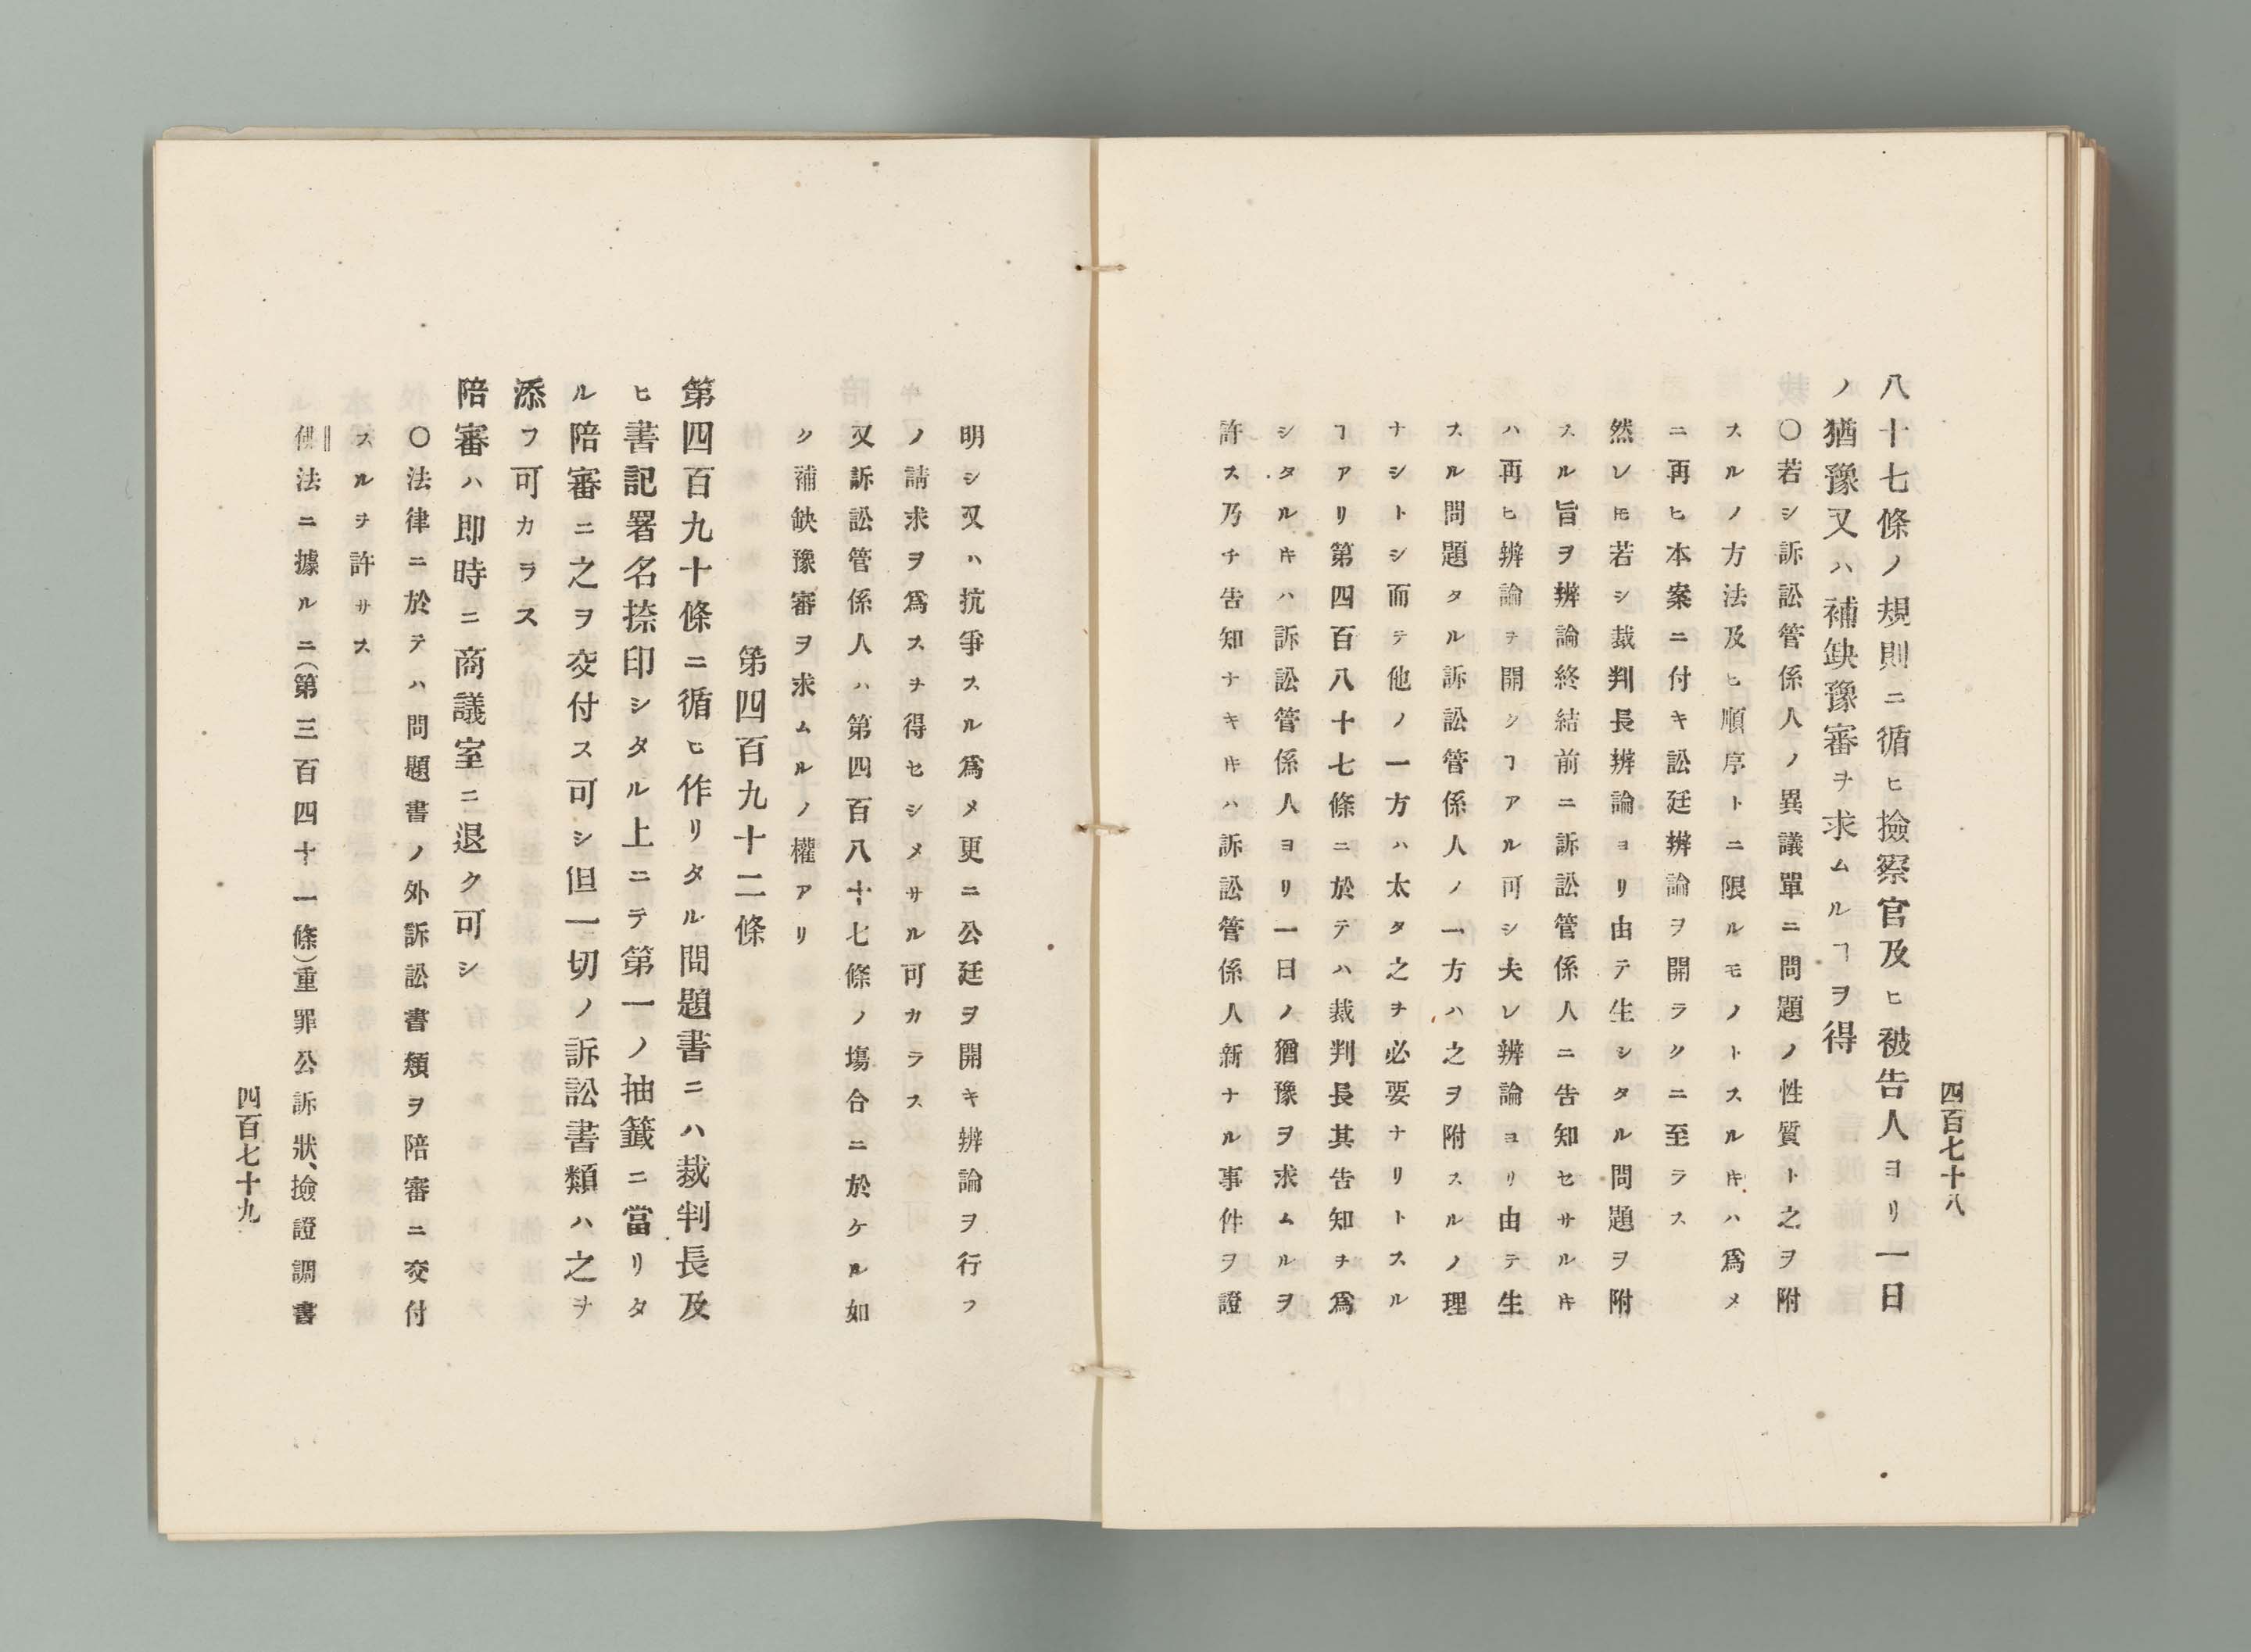 四百七十八
八十七條ノ規則ニ循ヒ撿察官及ヒ被告人ヨリ一日
ノ猶豫又ハ補缺豫審ヲ求ムルヿヲ得
〇若シ訴訟管係人ノ異議單ニ問題ノ性質ト之ヲ附
スルノ方法及ヒ順序トニ限ルモノトスルキハ爲メ
ニ再ヒ本案ニ付キ訟廷辨論ヲ開ラクニ至ラス
然レ𪜈若シ裁判長辨論ヨリ由テ生シタル問題ヲ附
スル旨ヲ辨論終結前ニ訴訟管係人ニ告知セサルキ
ハ再ヒ辨論ヲ開クヿアル可シ夫レ辨論ヨリ由テ生
スル問題タル訴訟管係人ノ一方ハ之ヲ附スルノ理
ナシトシ而テ他ノ一方ハ太タ之ヲ必要ナリトスル
ヿアリ第四百八十七條ニ於テハ裁判長其告知ヲ爲
シタルキハ訴訟管係人ヨリ一日ノ猶豫ヲ求ムルヲ
許ス乃チ告知ナキキハ訴訟管係人新ナル事件ヲ證
明シ又ハ抗爭スル爲メ更ニ公廷ヲ開キ辨論ヲ行フ
ノ請求ヲ爲スヲ得セシメサル可カラス
又訴訟管係人ハ第四百八十七條ノ塲合ニ於ケル如
ク補缺豫審ヲ求ムルノ權アリ
第四百九十二條
第四百九十條ニ循ヒ作リタル問題書ニハ裁判長及
ヒ書記署名捺印シタル上ニテ第一ノ抽籤ニ當リタ
ル陪審ニ之ヲ交付ス可シ但一切ノ訴訟書類ハ之ヲ
添フ可カラス
陪審ハ即時ニ商議室ニ退ク可シ
〇法律ニ於テハ問題書ノ外訴訟書類ヲ陪審ニ交付
スルヲ許サス
佛法ニ據ルニ(第三百四十一條)重罪公訴狀、撿證調書
四百七十九